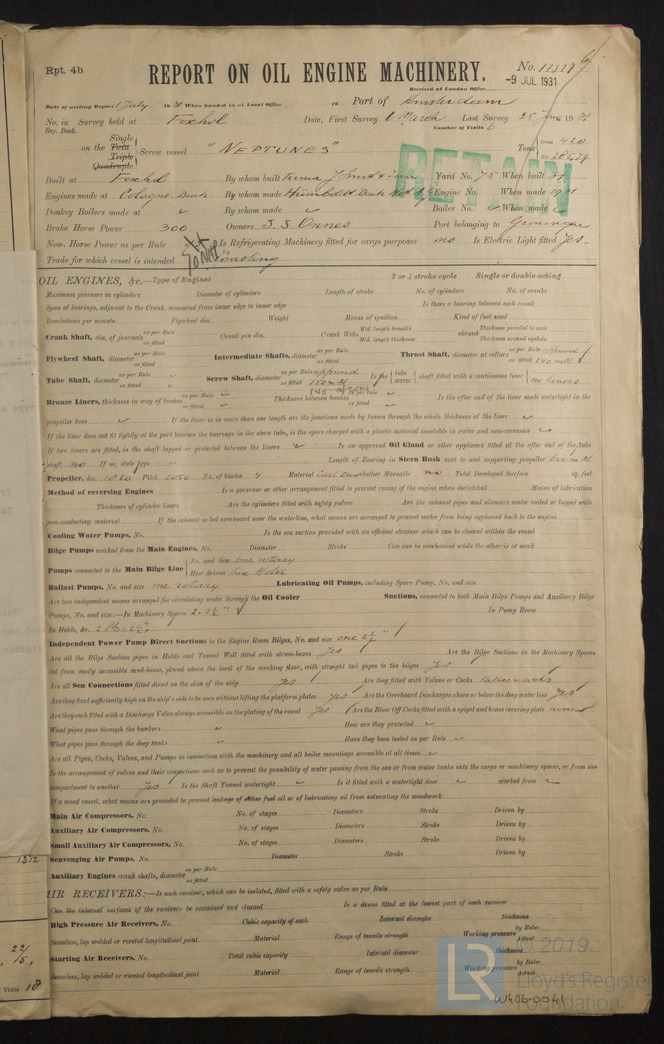 Rpt. 4b.
REPORT ON OIL ENGINE MACHINERY.
No. 12829
-9 JUL 1931
Received at London Office
Date of writing Report 1 July 19 31 When handed in at Local Office 19 Port of Amsterdam
No. in Survey held at Foxhol Date, First Survey 6 March Last Survey 25 June 1931
Reg. Book. Number of Visits 6
on the Single Twin Triple Quadruple Screw vessel "NEPTUNES" Tons Gross 420 Net
RETAIN
Built at Foxhol By whom built Firma J. Smit & Zoon Yard No. 75 When built 31
Engines made at Cologne Deutz By whom made Humboldt Deutz Engine No. When made 1931
Donkey Boilers made at By whom made Boiler No. When made
Brake Horse Power 300 Owners J. S. Onnes Port belonging to Groningen
Nom. Horse Power as per Rule Is Refrigerating Machinery fitted for cargo purposes no Is Electric Light fitted Yes.
Trade for which vessel is intended Coasting
OIL ENGINES, &c.—Type of Engines 2 or 4 stroke cycle Single or double acting
Maximum pressure in cylinders Diameter of cylinders Length of stroke No. of cylinders No. of cranks
Span of bearings, adjacent to the Crank, measured from inner edge to inner edge Is there a bearing between each crank
Revolutions per minute Flywheel dia. Weight Means of ignition Kind of fuel used
Crank Shaft, dia. of journals as per Rule as fitted Crank pin dia. Crank Webs Mid. length breadth Mid. length thickness shrunk Thickness parallel to axis Thickness around eyehole
Flywheel Shaft, diameter as per Rule as fitted Intermediate Shafts, diameter as per Rule as fitted Thrust Shaft, diameter at collars as per Rule approved as fitted 140 m/m
Tube Shaft, diameter as per Rule as fitted Screw Shaft, diameter as per Rule approved as fitted 150 m/m Is the tube screw shaft fitted with a continuous liner no liners
Bronze Liners, thickness in way of bushes as per Rule as fitted Thickness between bushes as per rule as fitted Is the after end of the liner made watertight in the
propeller boss If the liner is in more than one length are the junctions made by fusion through the whole thickness of the liner
If the liner does not fit tightly at the part between the bearings in the stern tube, is the space charged with a plastic material insoluble in water and non-corrosive
If two liners are fitted, is the shaft lapped or protected between the liners Is an approved Oil Gland or other appliance fitted at the after end of the tube
shaft no If so, state type Length of Bearing in Stern Bush next to and supporting propeller 600 m/m
Propeller, dia. 1820 Pitch 1050 No. of blades 4 Material Cast Iron whether Moveable no Total Developed Surface sq. feet
Method of reversing Engines Is a governor or other arrangement fitted to prevent racing of the engine when declutched Means of lubrication
Thickness of cylinder liners Are the cylinders fitted with safety valves Are the exhaust pipes and silencers water cooled or lagged with
non-conducting material If the exhaust is led overboard near the waterline, what means are arranged to prevent water from being syphoned back to the engine
Cooling Water Pumps, No. Is the sea suction provided with an efficient strainer which can be cleared within the vessel
Bilge Pumps worked from the Main Engines, No. Diameter Stroke Can one be overhauled while the other is at work
Pumps connected to the Main Bilge Line No. and Size one rotary How driven
Ballast Pumps, No. and size one rotary Lubricating Oil Pumps, including Spare Pump, No. and size
Are two independent means arranged for circulating water through the Oil Cooler Suctions, connected to both Main Bilge Pumps and Auxiliary Bilge
Pumps, No. and size:—In Machinery Spaces 2-2½" In Pump Room
In Holds, &c.
Independent Power Pump Direct Suctions to the Engine Room Bilges, No. and size one 2½"
Are all the Bilge Suction pipes in Holds and Tunnel Well fitted with strum-boxes Yes Are the Bilge Suctions in the Machinery Spaces
led from easily accessible mud-boxes, placed above the level of the working floor, with straight tail pipes to the bilges Yes
Are all Sea Connections fitted direct on the skin of the ship Yes Are they fitted with Valves or Cocks valves & cocks
Are they fixed sufficiently high on the ship's side to be seen without lifting the platform plates Yes Are the Overboard Discharges above or below the deep water line Yes
Are they each fitted with a Discharge Valve always accessible on the plating of the vessel Yes Are the Blow Off Cocks fitted with a spigot and brass covering plate
What pipes pass through the bunkers How are they protected
What pipes pass through the deep tanks Have they been tested as per Rule
Are all Pipes, Cocks, Valves, and Pumps in connection with the machinery and all boiler mountings accessible at all times
Is the arrangement of valves and their connections such as to prevent the possibility of water passing from the sea or from water tanks into the cargo or machinery spaces, or from one
compartment to another Yes Is the Shaft Tunnel watertight Is it fitted with a watertight door worked from
If a wood vessel, what means are provided to prevent leakage of either fuel oil or of lubricating oil from saturating the woodwork
Main Air Compressors, No. No. of stages Diameters Stroke Driven by
Auxiliary Air Compressors, No. No. of stages Diameters Stroke Driven by
Small Auxiliary Air Compressors, No. No. of stages Diameters Stroke Driven by
Scavenging Air Pumps, No. Diameter Stroke Driven by
Auxiliary Engines crank shafts, diameter as per Rule as fitted
AIR RECEIVERS:—Is each receiver, which can be isolated, fitted with a safety valve as per Rule
Can the internal surfaces of the receivers be examined and cleaned Is a drain fitted at the lowest part of each receiver
High Pressure Air Receivers, No. Cubic capacity of each Internal diameter thickness
Seamless, lap welded or riveted longitudinal joint Material Range of tensile strength Working pressure by Rules Actual
Starting Air Receivers, No. Total cubic capacity Internal diameter thickness
Seamless, lap welded or riveted longitudinal joint Material Range of tensile strength Working pressure by Rules Actual
LR © 2019
Lloyd's Register
Foundation
W406-0041